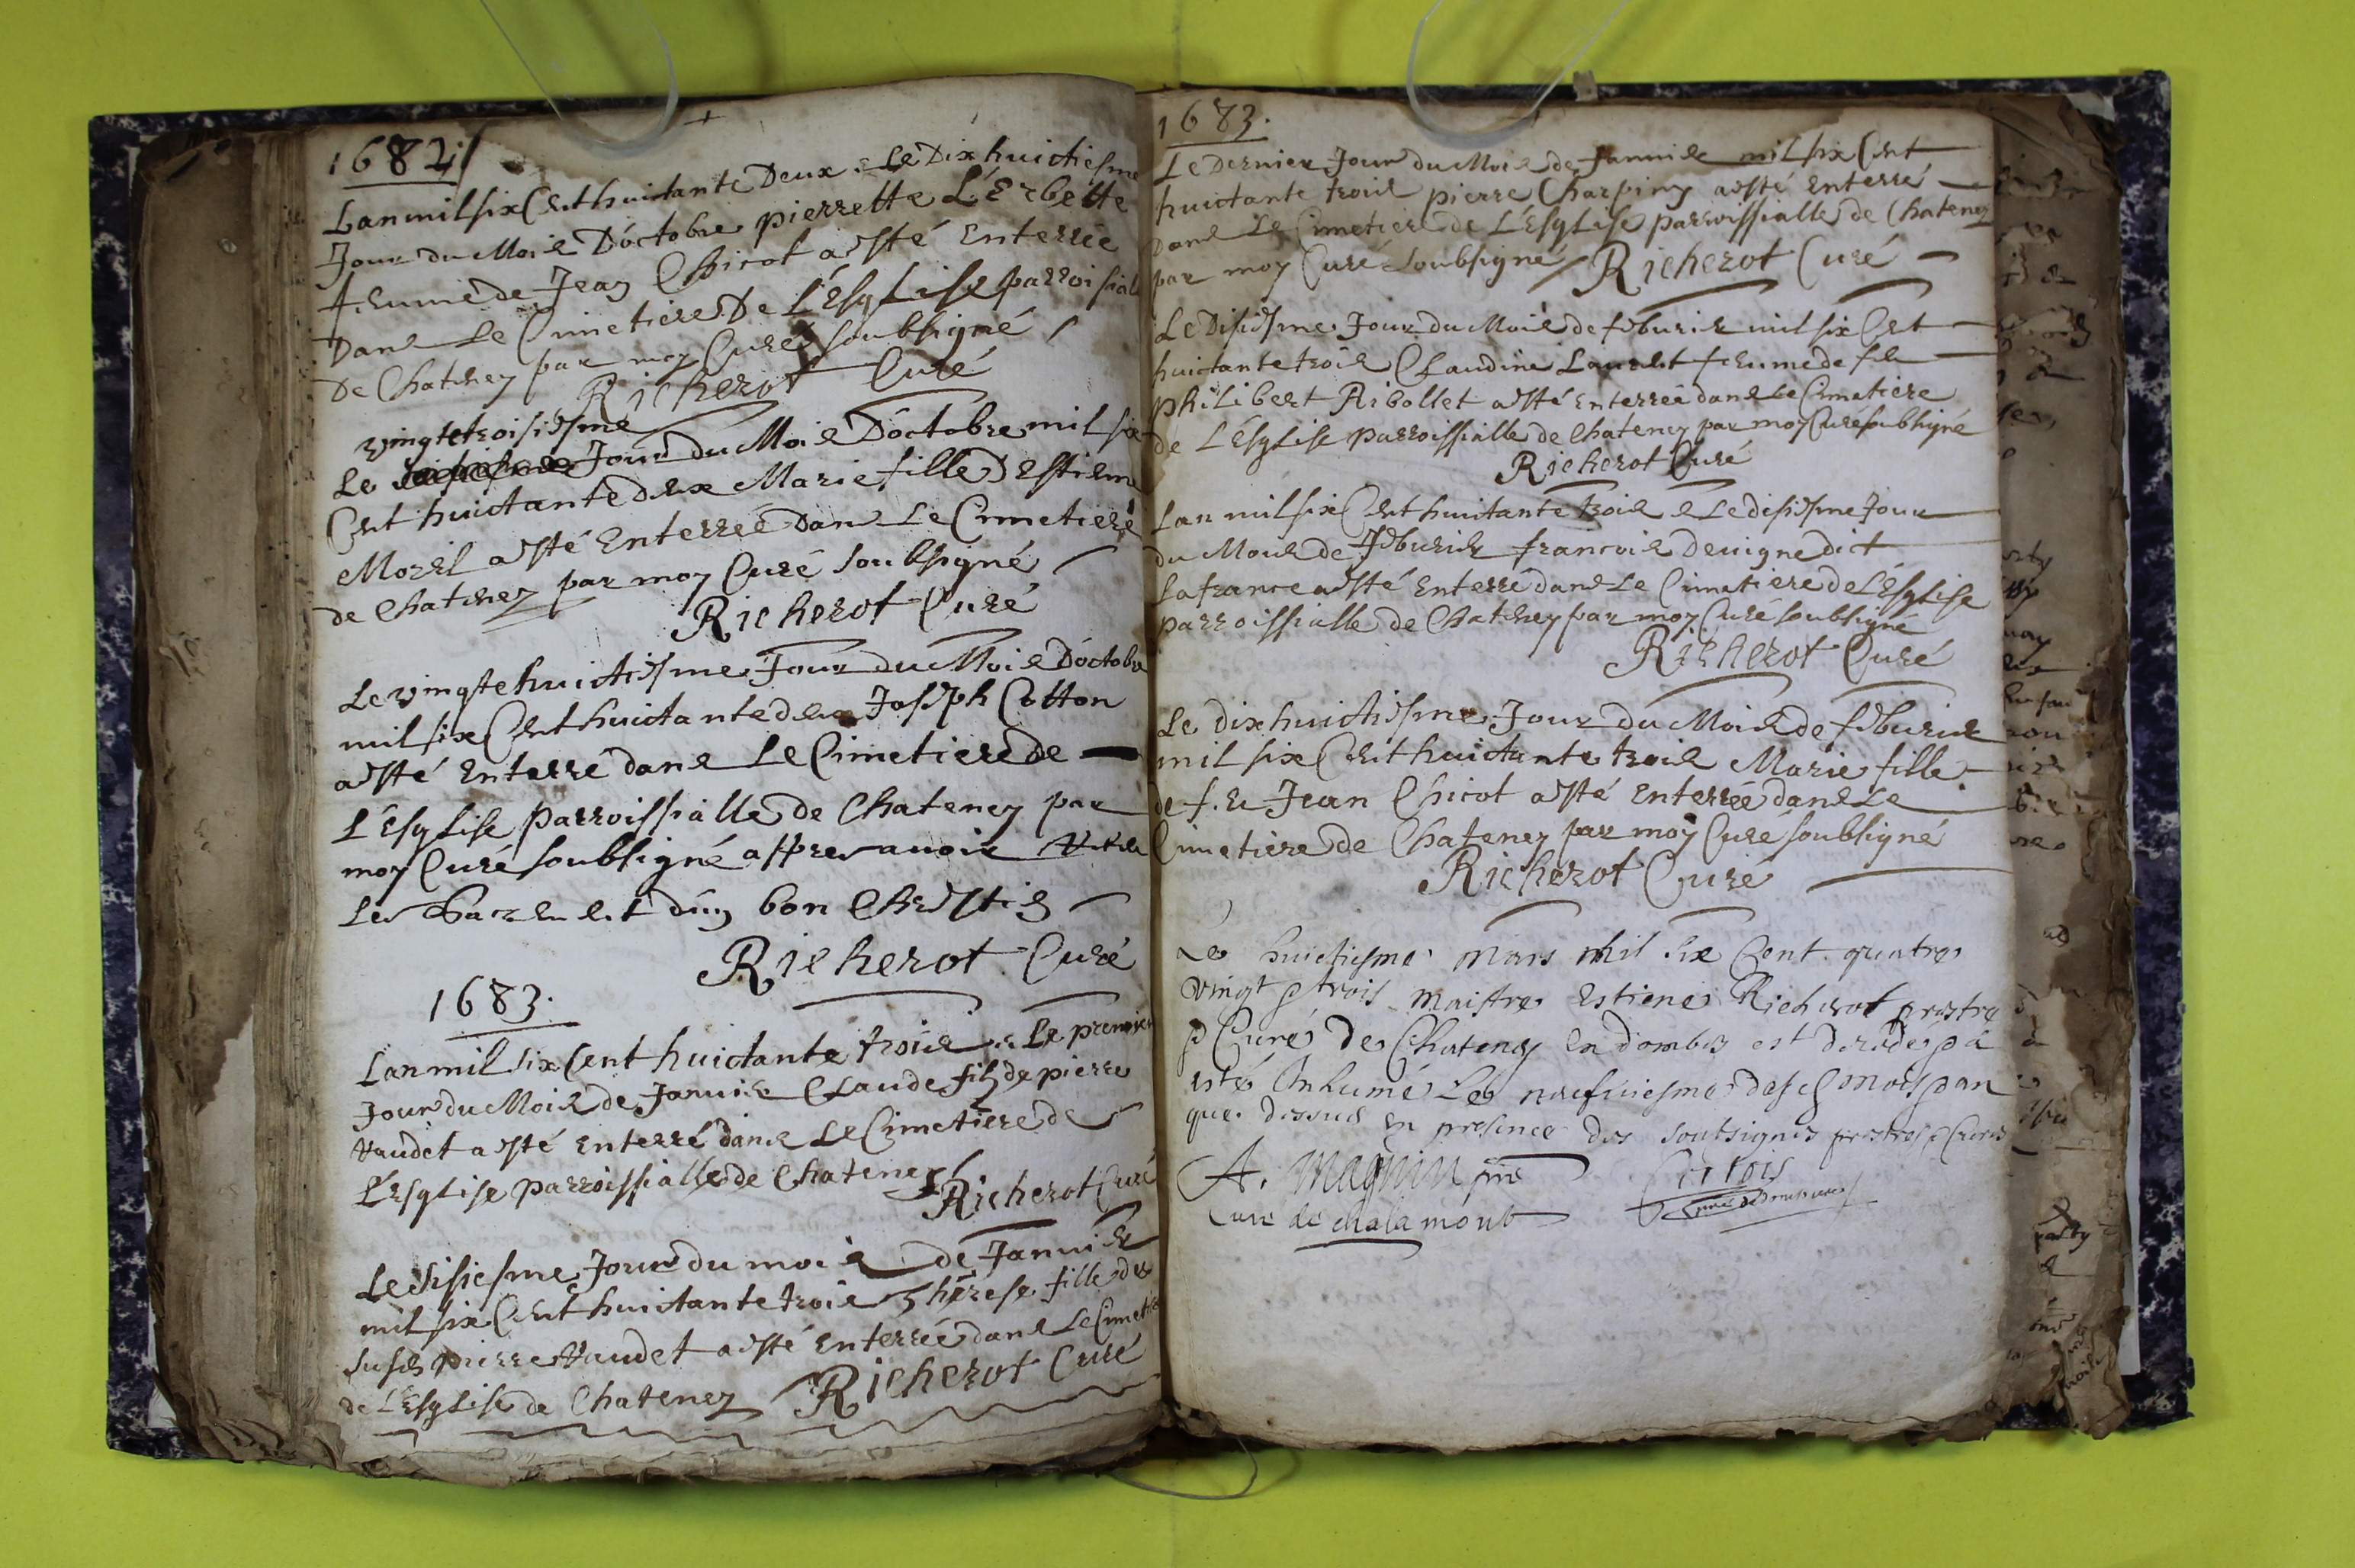 1682
Lan mil six Cent huictante Deux & Le Dix huictiesme
Jour du Mois D'octobre pierrette L'Erbette
femme de Jean Chicot a esté Enterrée
Dans Le Cimetiere De L'Esglise parroissiale
De Chateney par moy Curé soubsigné
Richerot Curé
vingtetroisiesme
Le Jour du Mois D'octobre mil six
Cent huictante deux Marie fille D'Estienne
Morel a esté Enterree Dans Le Cimetiere
de Chateney par moy Curé soubsigné
Richerot Curé
Le vingtehuictiesme Jour du Mois D'octobre
mil six Cent huictante deux Joseph Cotton
a esté Enterré dans Le Cimetiere de
L'Esglise parroissialle de Chateney par
moy Curé soubsigné appres avoir
Les Sacrement d'un bon Chrestien
Richerot Curé
1683.
Lan mil six Cent huictante trois & Le premier
Jour du Mois de Janvier Claude filz de pierre
Vaudet a esté Enterré dans Le Cimetiere de
L'Esglise parroissialle de Chateney
Richerot Curé
Le disiesme Jour du mois de Janvier
mil six Cent huictante trois Therese fille de
susdit pierre Vaudet a esté Enterrée dans Le Cimetiere
de L'Esglise de Chateney Richerot Curé
1683.
Le Dernier Jour du Mois de Janvier mil six Cent
huictante trois pierre Charpiny a esté Enterré
Dans Le Cimetiere de L'Esglise parroissialle de Chateney
par moy Curé soubsigné Richerot Curé
Le Disiesme Jour du Mois de febvrier mil six Cent
huictante trois Claudine Laurent femme de feu
philibert Ribollet a esté Enterrée dans Le Cimetiere
de L'Esglise parroissialle de Chateney par moy Curé soubsigné
Richerot Curé
Lan mil six Cent huictante trois & Le disiesme Jour
du Mois de febvrier francois Devigne dict
Lafrance a esté Enterré dans Le Cimetiere de L'Esglise
parroissialle de Chateney par moy Curé soubsigné
Richerot Curé
Le dix huictiesme Jour du Mois de febvrier
mil six Cent huictante trois Marie fille
de feu Jean Chicot a esté Enterrée dans Le
Cimetiere de Chateney par moy Curé soubsigné
Richerot Curé
Le huictiesme Mars Mil six Cent quatre
vingt & trois maistre Estiene Richerot prestre
& Curé de Chateney en dombes est decedé & a
esté Inhumé Le neufviesme desd mois & an
que dessus en presence des soubsignes prestres & Cures
A. Magnin pre
Curé de chalamont